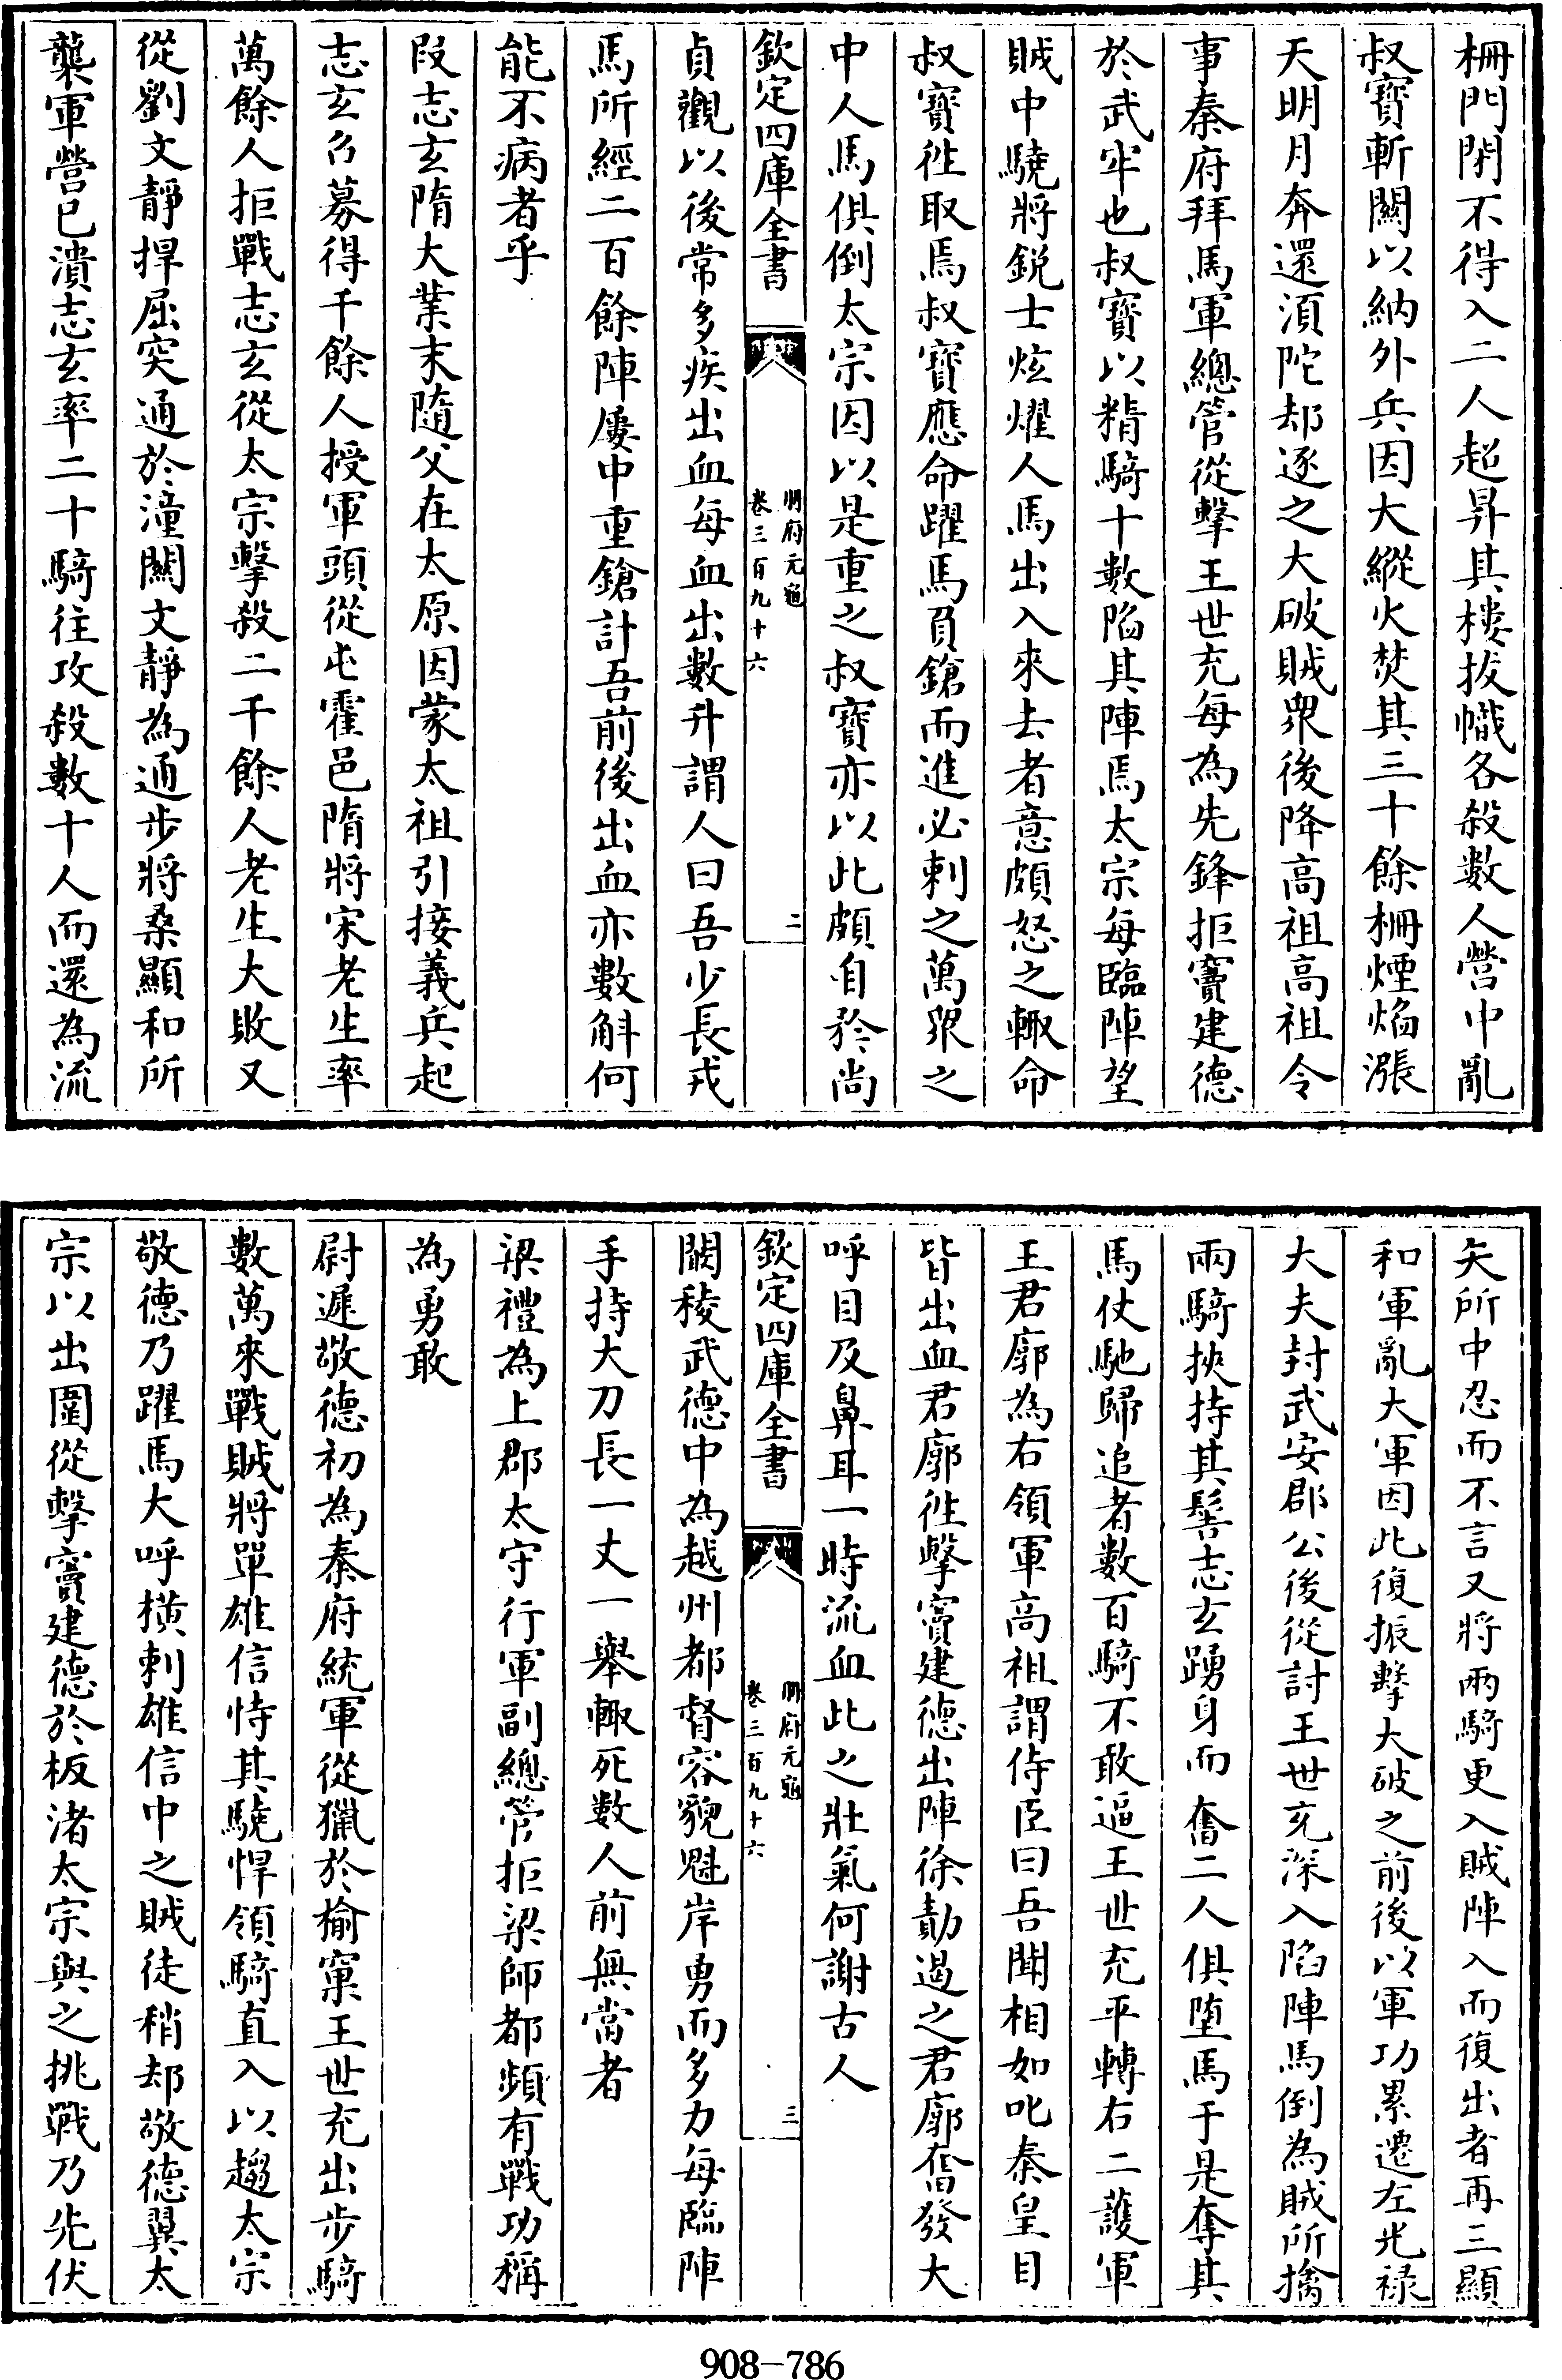 柵門閉不得入二人超昇其樓拔幟各殺數人營中亂
叔寶斬關以納外兵因大縱火焚其三十餘柵煙焰漲
天明月奔還須陀却逐之大破賊衆後降高祖高祖令
事秦府拜馬軍總管從擊王世充每為先鋒拒竇建德
於武牢也叔寶以精騎十數陷其陣焉太宗每臨陣望
賊中驍將銳士炫燿人馬出入來去者意頗怒之輙命
叔寶徃取焉叔寶應命躍馬負鎗而進必刺之萬衆之
中人馬俱倒太宗因以是重之叔寶亦以此頗自矜尚
欽定四庫全書
冊府元龜
卷三百九十六
二
貞觀以後常多疾出血每血出數升謂人曰吾少長戎
馬所經二百餘陣屢中重鎗計吾前後出血亦數斛何
能不病者乎
段志玄隋大業末隨父在太原因蒙太祖引接義兵起
志玄召募得千餘人授軍頭從屯霍邑隋將宋老生率
萬餘人拒戰志玄從太宗擊殺二千餘人老生大敗又
從劉文靜捍屈突通於潼關文靜為通步將桑顯和所
襲軍營已潰志玄率二十騎往攻殺數十人而還為流
矢所中忍而不言又將兩騎更入賊陣入而復出者再三顯
和軍亂大軍因此復振擊大破之前後以軍功累遷左光祿
大夫封武安郡公後從討王世充深入陷陣馬倒為賊所擒
兩騎挾持其髻志玄踴身而奮二人俱墮馬于是奪其
馬仗馳歸追者數百騎不敢逼王世充平轉右二護軍
王君廓為右領軍高祖謂侍臣曰吾聞相如叱秦皇目
皆出血君廓徃擊竇建德出陣徐勣遏之君廓奮發大
呼目及鼻耳一時流血此之壯氣何謝古人
欽定四庫全書
冊府元龜
卷三百九十六
三
闞稜武德中為越州都督容貌魁岸勇而多力每臨陣
手持大刀長一丈一舉輙死數人前無當者
梁禮為上郡太守行軍副總管拒梁師都頻有戰功稱
為勇敢
尉遲敬德初為秦府統軍從獵於榆窠王世充出步騎
數萬來戰賊將單雄信恃其驍悍領騎直入以趨太宗
敬德乃躍馬大呼橫刺雄信中之賊徒稍却敬德翼太
宗以出圍從擊竇建德於板渚太宗與之挑戰乃先伏
908-786